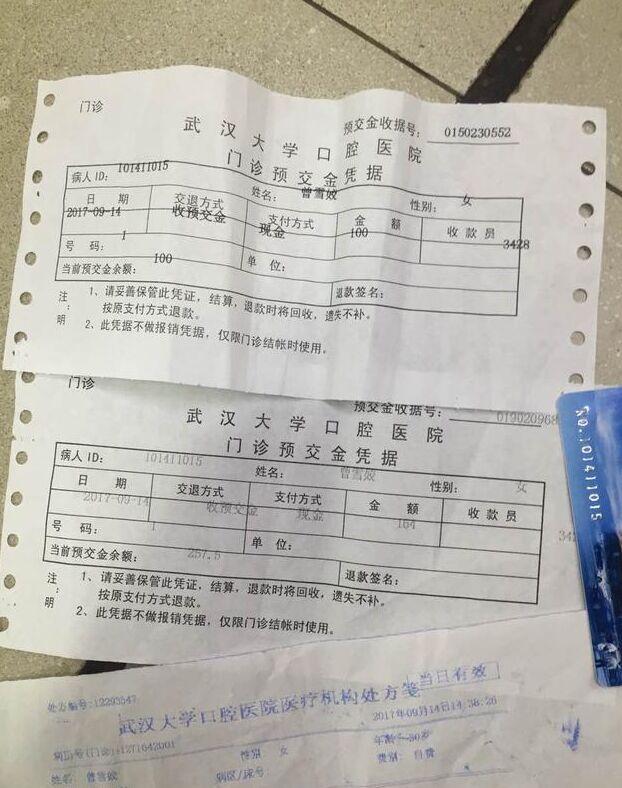 门诊
预交金收据号: 0150230552
武汉大学口腔医院
门诊预交金凭据
病人ID: 101411015 姓名: 曾雪姣 性别: 女
日 期 交退方式 支付方式 金 额 收款员
2017-09-14 收预交金 现金 100 3428
号 码: 1 单 位:
当前预交金余额: 100 退款签名:
注: 1、请妥善保管此凭证，结算，退款时将回收，遗失不补。
按原支付方式退款。
明 2、此凭据不做报销凭据，仅限门诊结帐时使用。
门诊
预交金收据号: 019020968
武汉大学口腔医院
门诊预交金凭据
病人ID: 101411015 姓名: 曾雪姣 性别: 女
日 期 交退方式 支付方式 金 额 收款员
2017-09-14 收预交金 现金 164 342
号 码: 1 单 位:
当前预交金余额: 257.5 退款签名:
注: 1、请妥善保管此凭证，结算，退款时将回收，遗失不补。
按原支付方式退款。
明 2、此凭据不做报销凭据，仅限门诊结帐时使用。
NO.101411015
当日有效
处方编号:12293547
武汉大学口腔医院医疗机构处方笺
2017年09月14日14:38:26
病历号(门诊):1271642001 性别 女 年龄 30岁
姓名 曾雪姣 病区/床号 费别: 自费